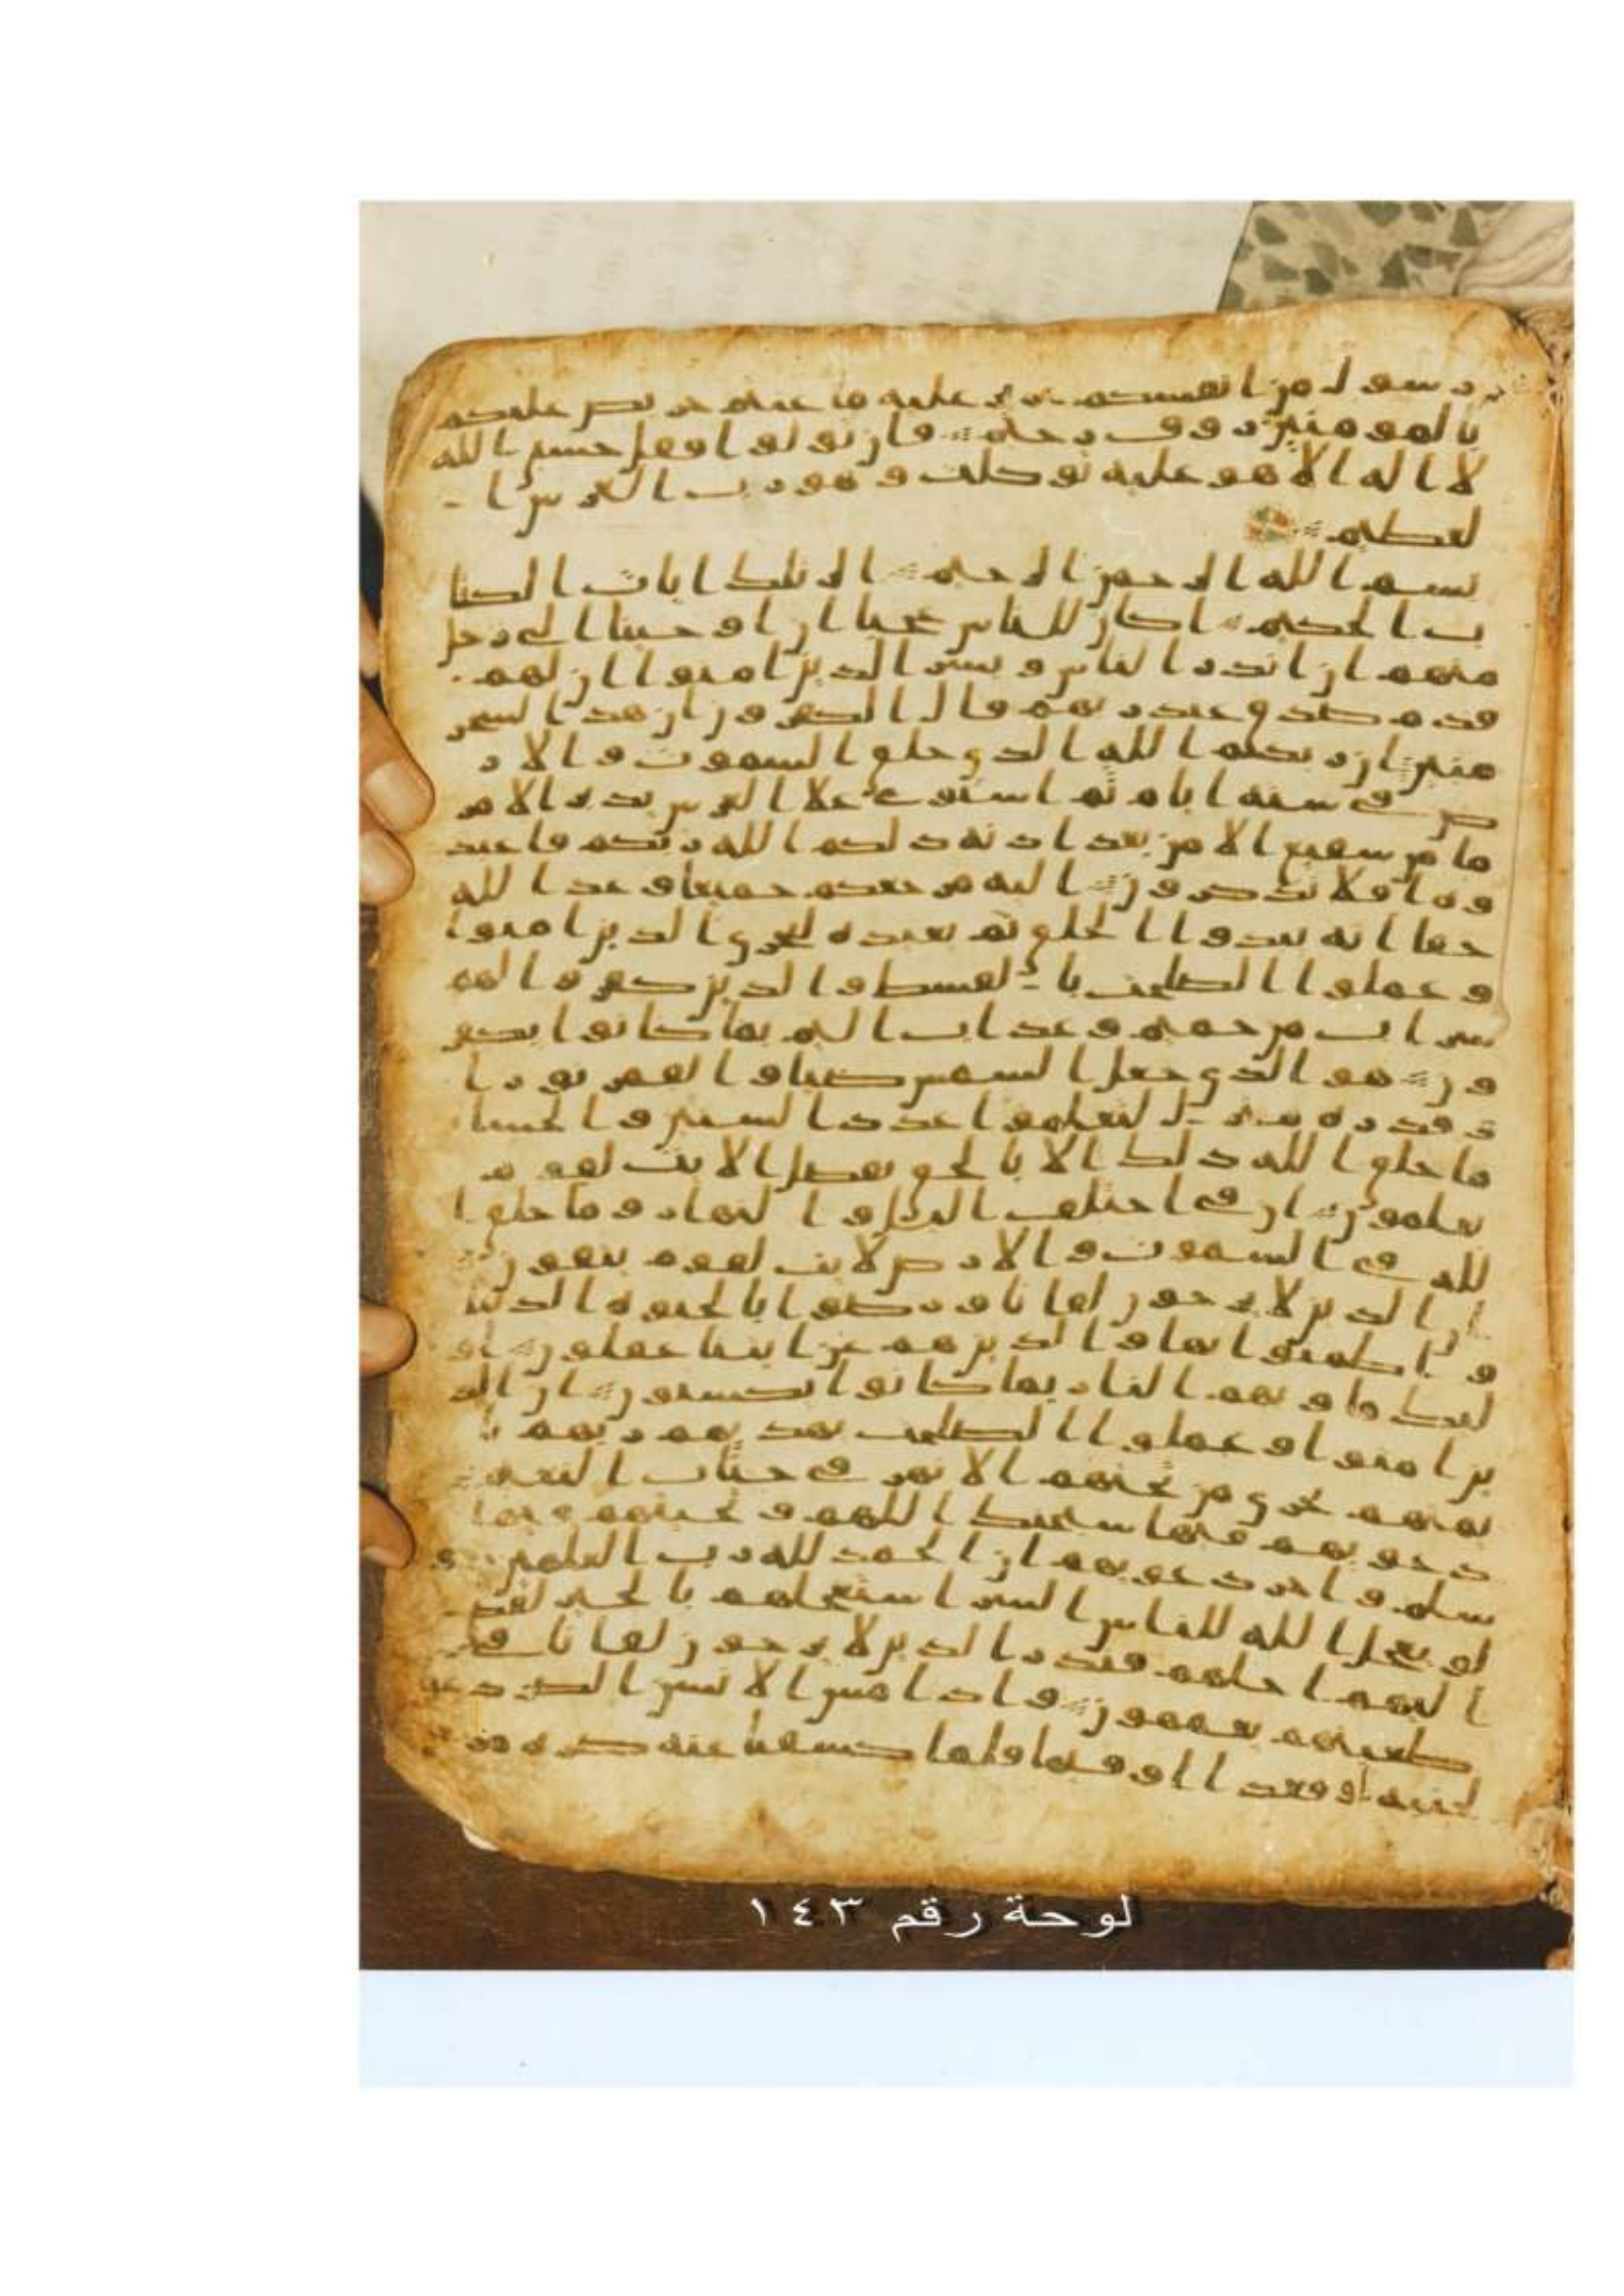 رسول من انفسكم عزيز عليه ما عنتم حريص عليكم
بالمومنين روف رحيم فان تولوا فقل حسبي الله
لا اله الا هو عليه توكلت وهو رب العرش ا
لعظيم
بسم الله الرحمن الرحيم الر تلك ايات الكتا
ب الحكيم اكان للناس عجبا ان اوحينا الى رجل
منهم ان انذر الناس وبشر الذين امنوا ان لهم
قدم صدق عند ربهم قال الكفرون ان هذا لسحر
مبين ان ربكم الله الذي خلق السموت والار
ض في ستة ايام ثم استوى علا العرش يدبر الامر
ما من شفيع الا من بعد اذنه ذلكم الله ربكم فاعبد
وه افلا تذكرون اليه مرجعكم جميعا وعد الله
حقا انه يبدوا الخلق ثم يعيده ليجزي الذين امنوا
وعملوا الصلحت با لقسط والذين كفروا لهم
شراب من حميم وعذاب اليم بما كانوا يكفر
ون هو الذي جعل الشمس ضيا والقمر نورا
وقدره منز ل لتعلموا عدد السنين والحسا
ما خلق الله ذلك الا بالحق يفصل الايت لقوم
يعلمون ان في اختلف اليل والنهار وما خلق ا
لله في السموت والارض لايت لقوم يتقون
ان الذين لا يرجون لقانا ورضوا بالحيوة الدنيا
واطمنوا بها والذين هم عن ايتنا غفلون او
لئك ماويهم النار بما كانوا يكسبون ان الذ
ين امنوا وعملوا الصلحت يهديهم ربهم با
يمنهم تجري من تحتهم الانهر في جنات النعيم
دعويهم فيها سبحنك اللهم وتحيتهم فيها
سلم واخر دعويهم ان الحمد لله رب العلمين و
لو يعجل الله للناس الشر استعجلهم بالخير لقض
ا ليهم اجلهم فنذر الذين لا يرجون لقانا في
طغينهم يعمهون واذا مس الانسن الضر دعا
لجنبه او قعدا او قيما فلما كشفنا عنه ضره مر
لوحة رقم ١٤٣